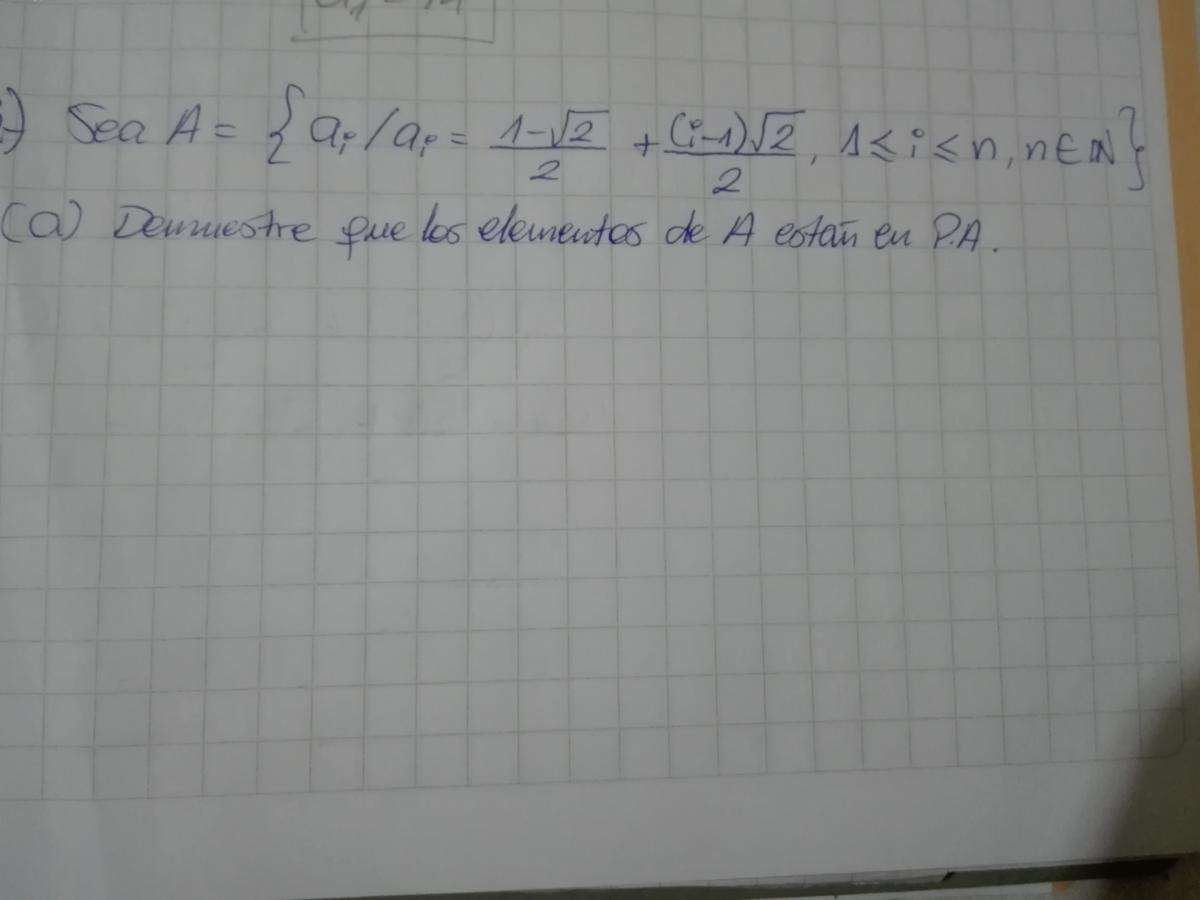 Sea A = { aᵢ / aᵢ = (1-√2)/2 + ((i-1)√2)/2, 1 ≤ i ≤ n, n ∈ ℕ }
(a) Demuestre que los elementos de A están en P.A.